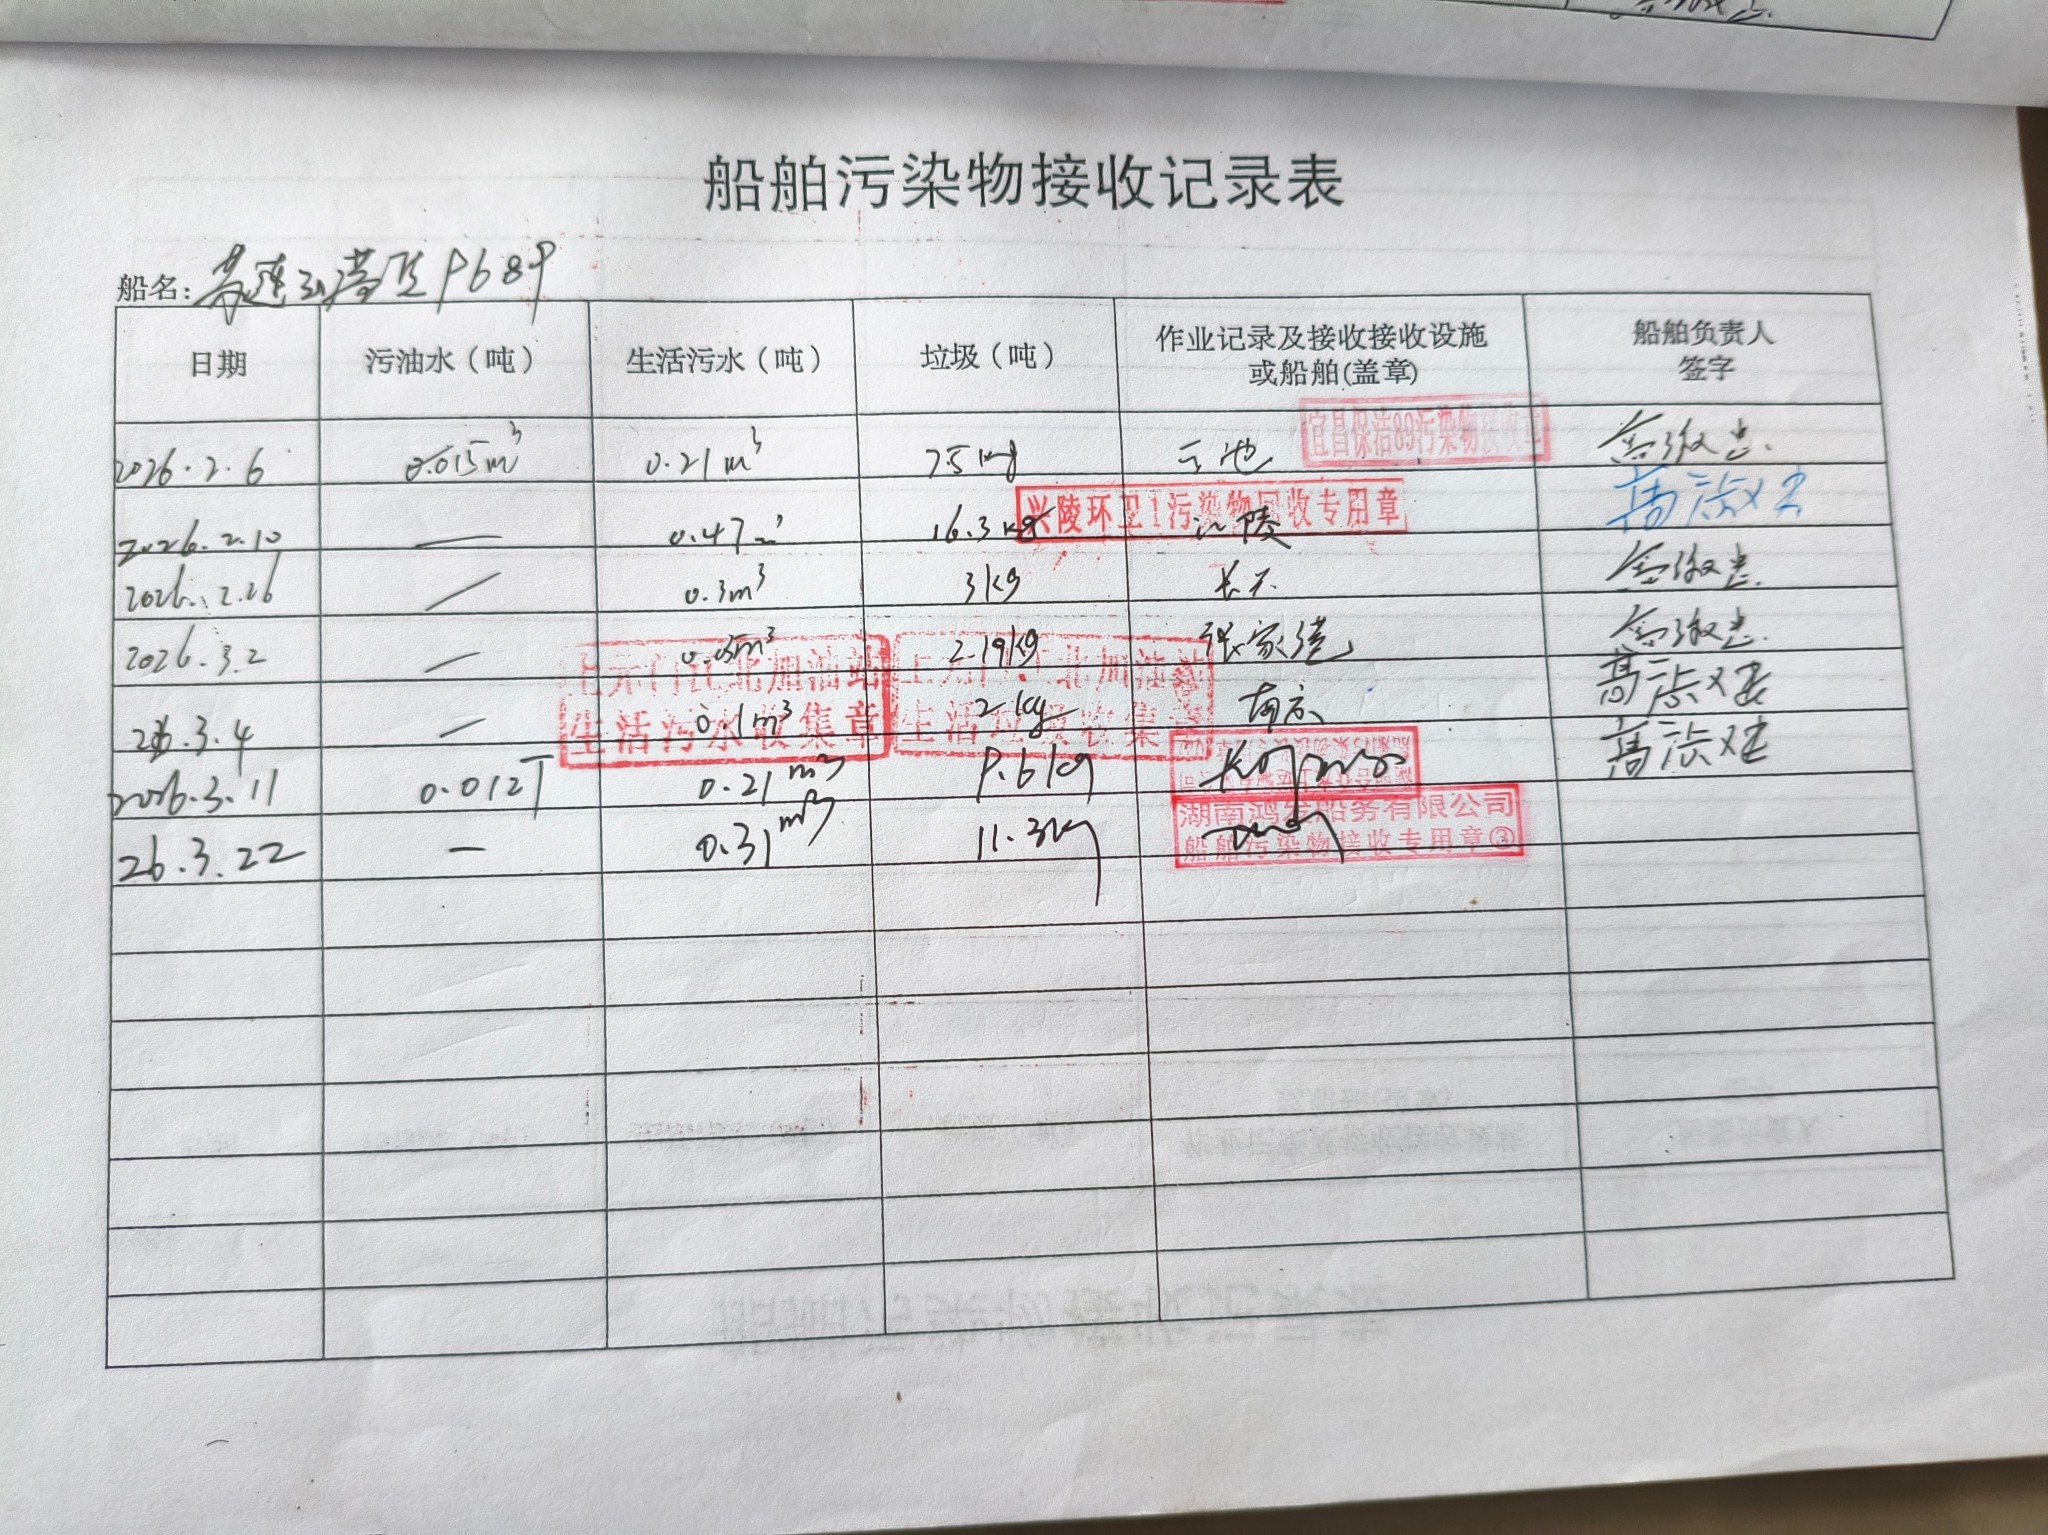 船舶污染物接收记录表
船名: 苏连云港货9689
日期 污油水（吨） 生活污水（吨） 垃圾（吨） 作业记录及接收接收设施或船舶(盖章) 船舶负责人签字
2026.2.6 0.015m³ 0.21m³ 7.5kg 云池 宜昌保洁89污染物接收章
2026.2.10 — 0.47m³ 16.3kg 兴陵环卫1污染物回收专用章 江陵
2026.2.26 / 0.3m³ 3kg
2026.3.2 — 0.05m³ 2.19kg 张家港
26.3.4 — 0.1m³ 2kg 南京
上元门江北加油站
生活污水收集章
上元门江北加油站
生活垃圾收集章
2026.3.11 0.012T 0.21m³ 9.6kg
26.3.22 — 0.31m³ 11.3kg
湖南鸿发船务有限公司
船舶污染物接收专用章③